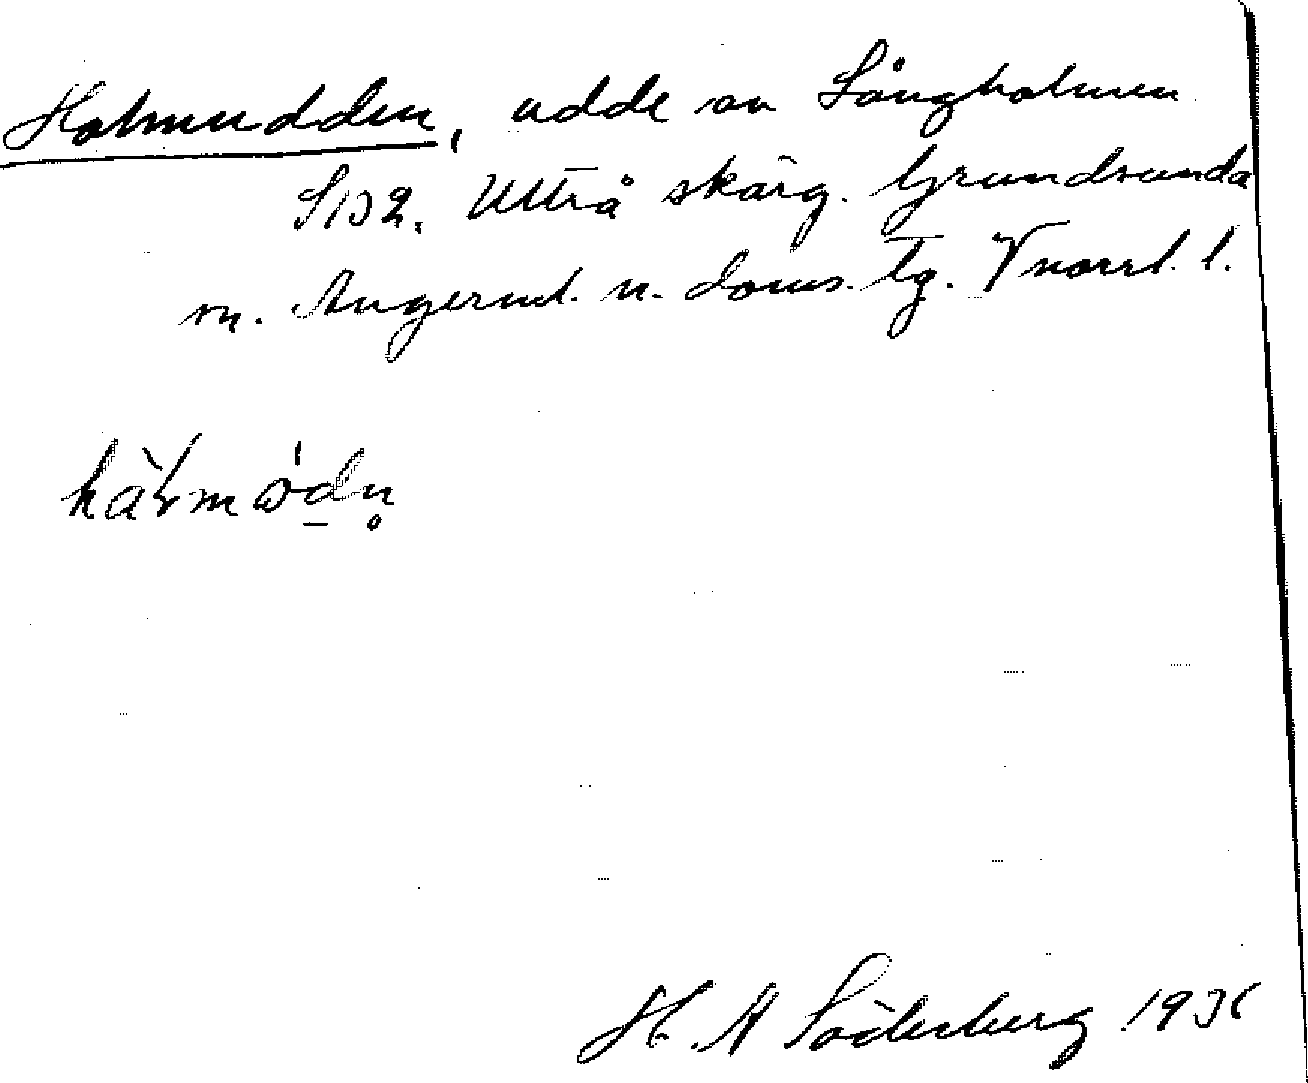 Holmudden, udde av Långholmen
S132. Ultrå skärg. Grundsunda
sn. Ångerml. n. doms. tg. Vnorrl. l.
H. A Söderberg 193